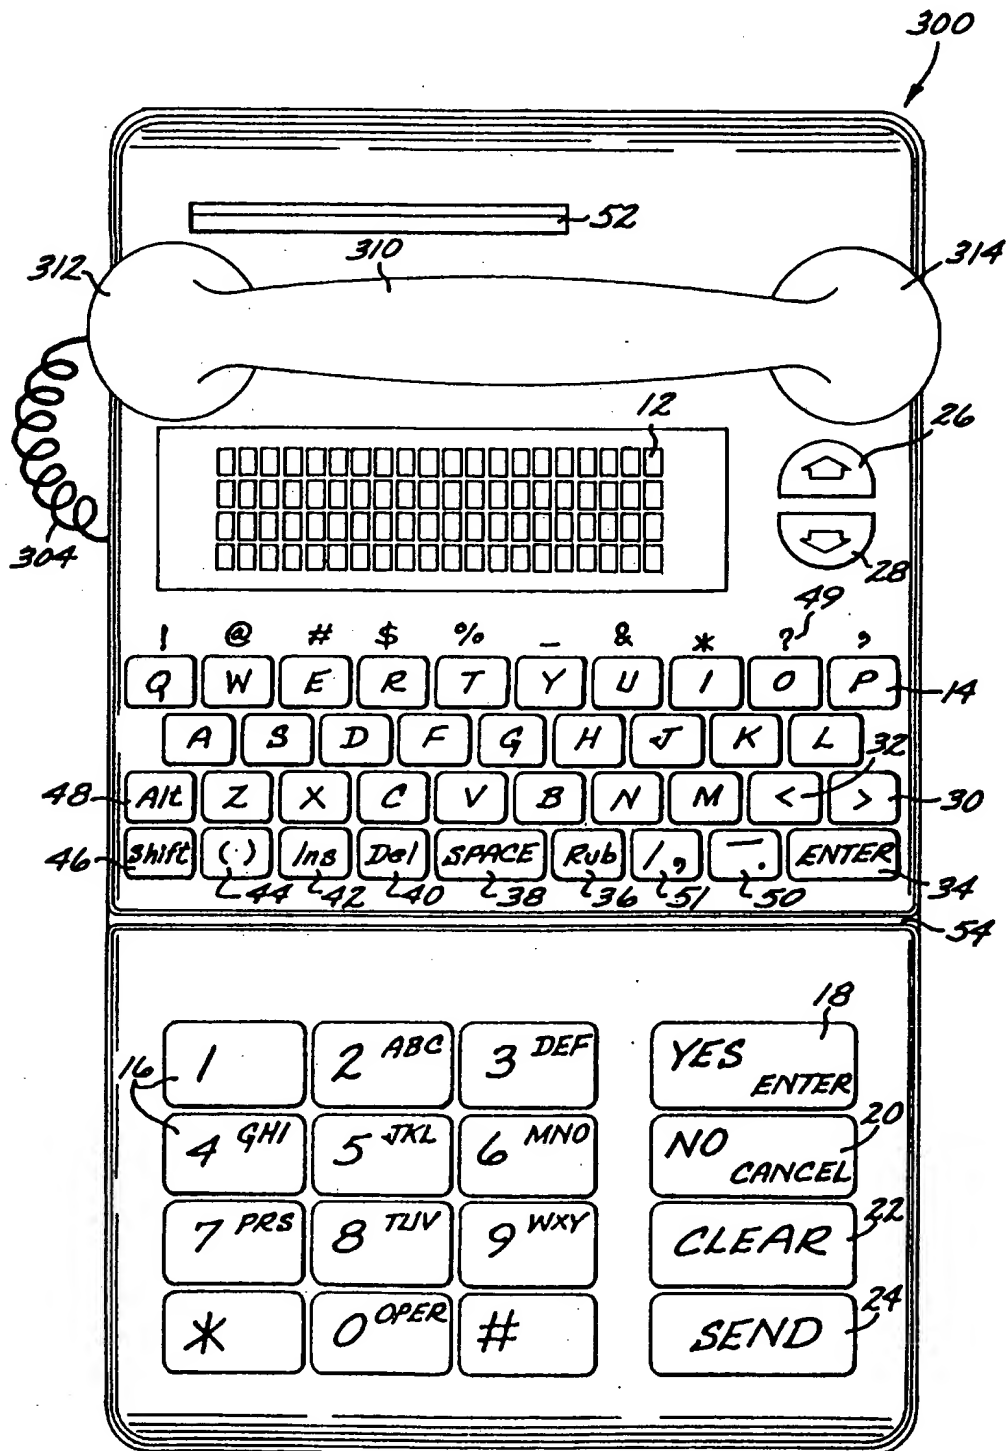 300
52
312 310 314
12 26
304 28
49
! @ # $ % _ & * ? ,
Q W E R T Y U I O P 14
A S D F G H J K L 32
48 Alt Z X C V B N M < > 30
46 Shift (·) Ins Del SPACE Rub / , — . ENTER
44 42 40 38 36 51 50 34
54
18
1 2 ABC 3 DEF YES ENTER
16
4 GHI 5 JKL 6 MNO NO CANCEL 20
7 PRS 8 TUV 9 WXY CLEAR 22
* 0 OPER # SEND 24